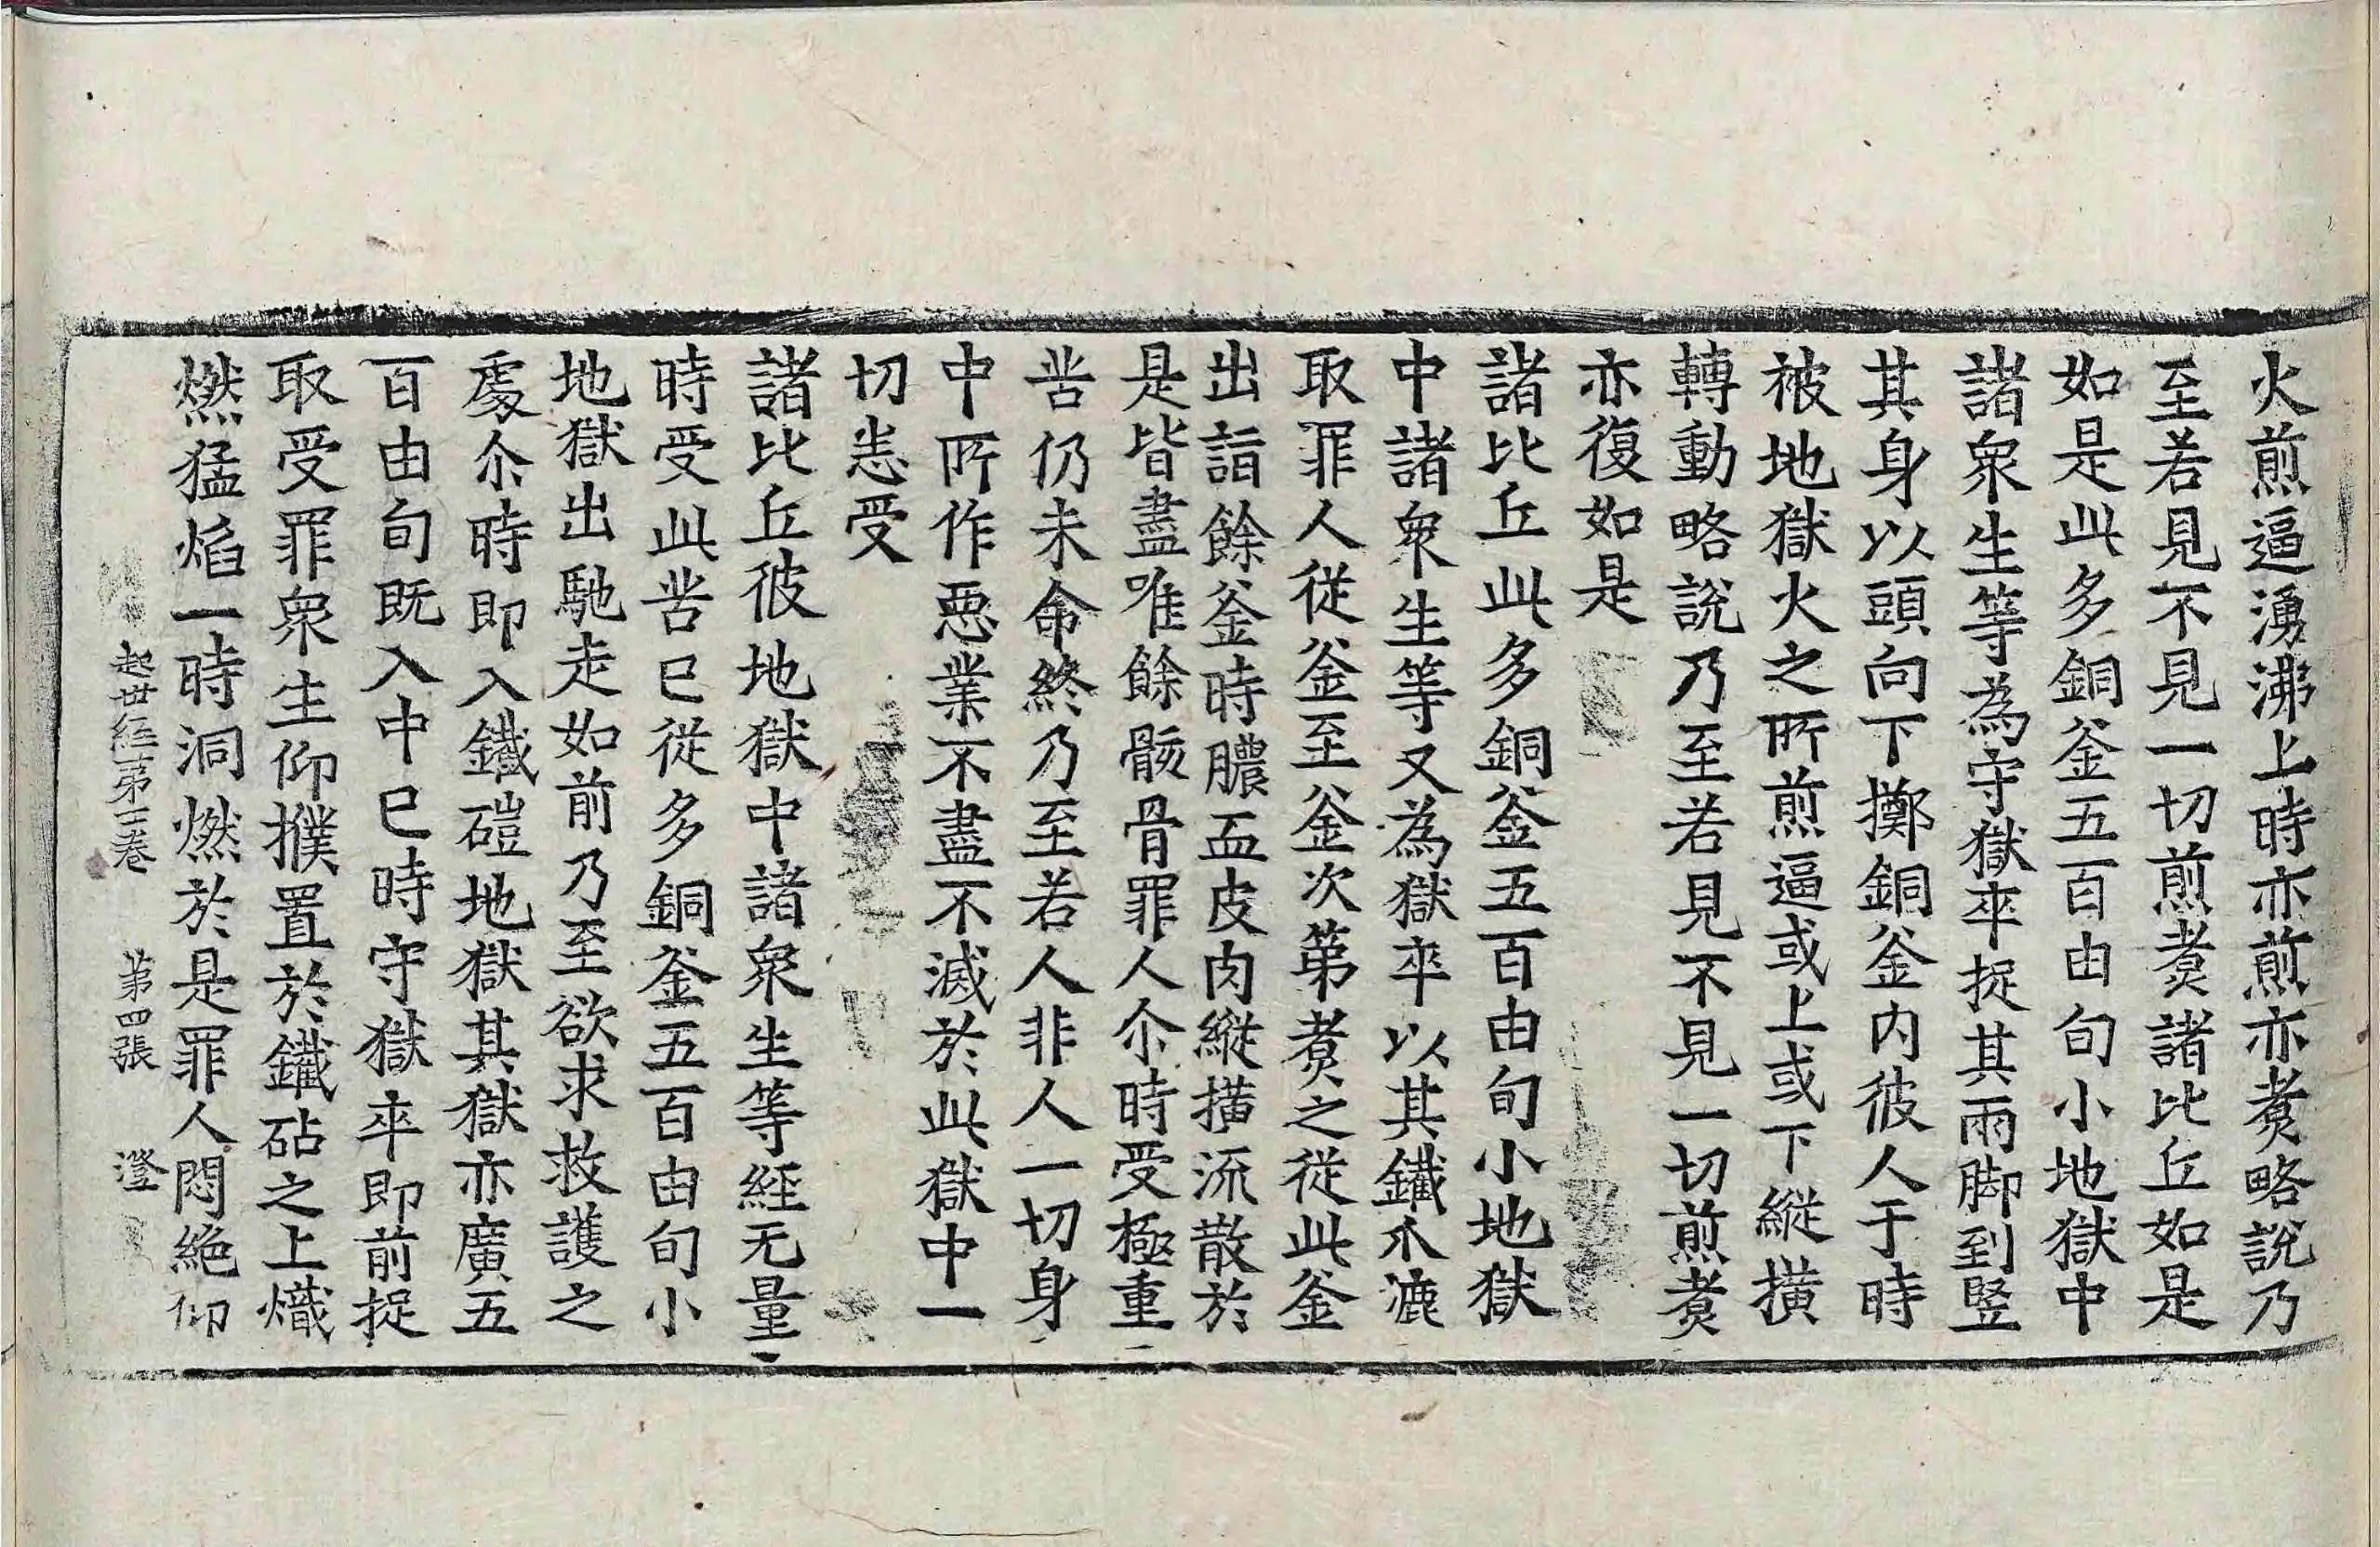 火煎逼湧沸上時亦煎亦煑略說乃
至若見不見一切煎煑諸比丘如是
如是此多銅釜五百由旬小地獄中
諸衆生等為守獄卒捉其兩脚到竪
其身以頭向下擲銅釜内彼人于時
被地獄火之所煎逼或上或下縱撗
轉動略說乃至若見不見一切煎煑
亦復如是
諸比丘此多銅釜五百由旬小地獄
中諸衆生等又為獄卒以其鐵爪漉
取罪人從釜至釜次第煑之從此釜
出詣餘釜時膿血皮肉縱撗流散於
是皆盡唯餘骸骨罪人尒時受極重
苦仍未命終乃至若人非人一切身
中所作惡業不盡不滅於此獄中一
切恚受
諸比丘彼地獄中諸衆生等經无量
時受此苦已從多銅釜五百由旬小
地獄出馳走如前乃至欲求救護之
處尒時即入鐵磑地獄其獄亦廣五
百由旬既入中已時守獄卒即前捉
取受罪衆生仰撲置於鐵砧之上熾
燃猛焰一時洞燃於是罪人悶絶仰
起世經第三卷 第四張 澄